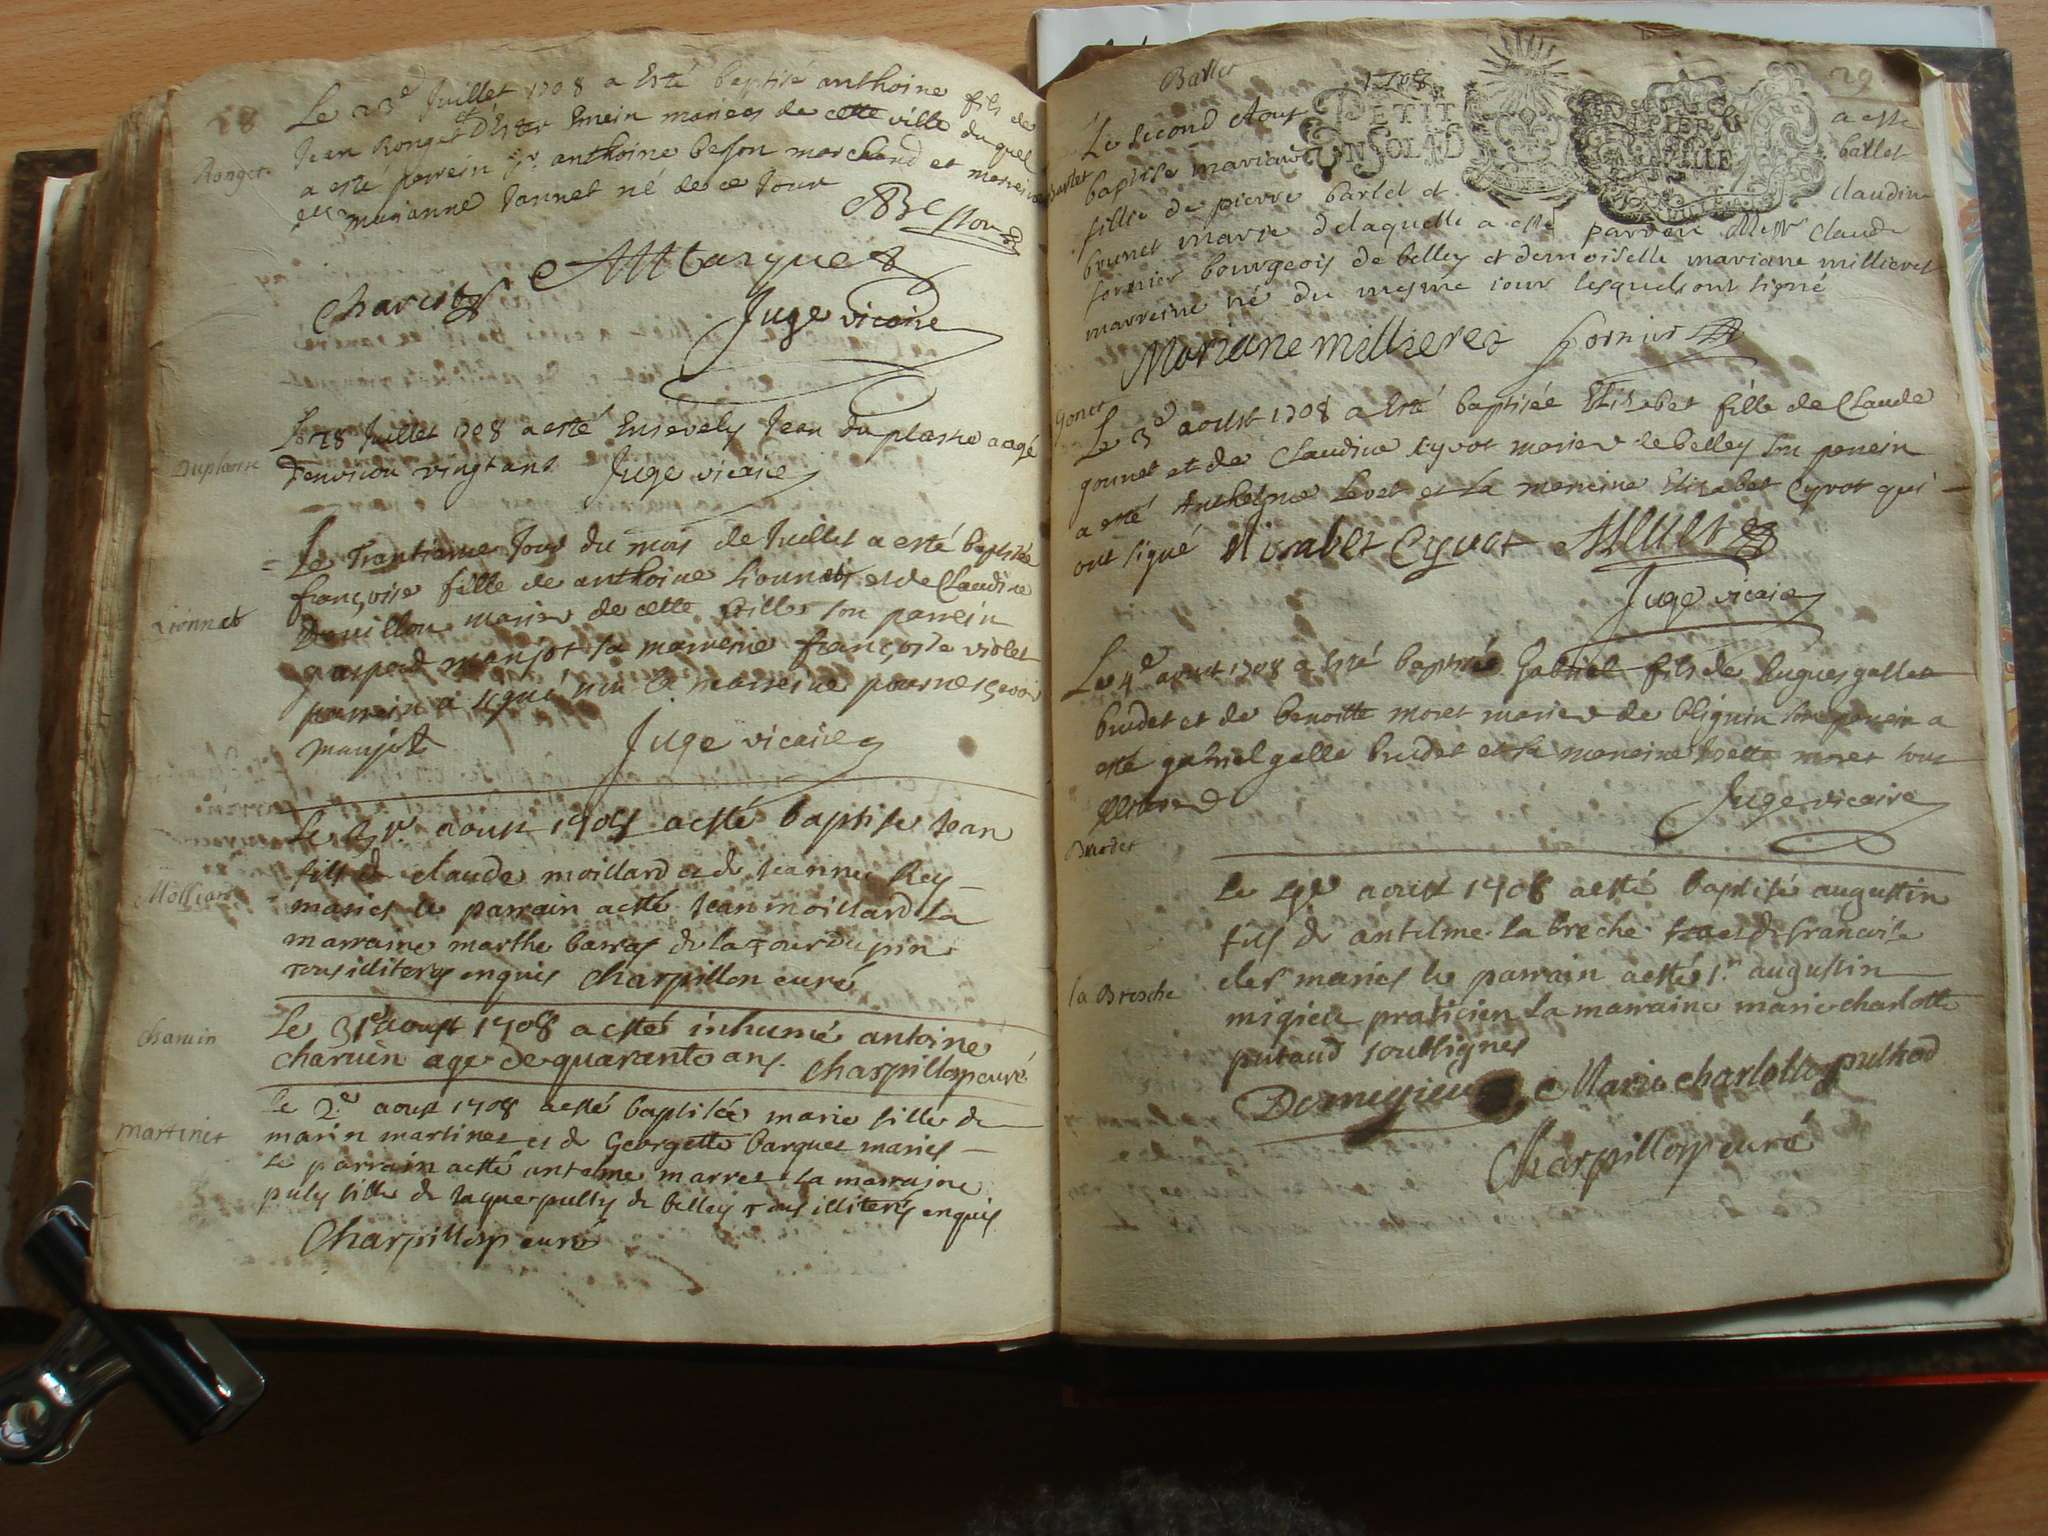 28
Le 23e Juillet 1708 a Esté baptisé anthoine fils de
Jean Ronget et d'Ester Emein mariés de cette ville duquel
a esté parrein Sr. anthoine beson marchand et marreine
marianne Jannet né de ce Jour
Ronget
Juge vicaire
Le 28 Juillet 1708 a esté Ensevely Jean duplastre aagé
d'environ vingt ans Juge vicaire
Duplastre
Le Trantieme Jour du mois de Juillet a esté baptisée
françoise fille de anthoine Lionnet et de Claudine
mariés de cette Ville son parrein
gaspard manjot sa marreine françoise violet
parrein a signé non la marreine pour ne sçavoir
manjot Juge vicaire
Lionnet
Le 1er aoust 1708 a esté baptise Jean
fils de claude moillard et de Jeanne Rey
maries le parrain a esté Jean moillard la
marraine marthe barras de la Tour du pin
tous illiterés enquis Charpillon curé
Moillard
Le 31e aoust 1708 a esté inhumé antoine
charuin age de quarante ans. Charpillon curé
charuin
Le 2e aoust 1708 a esté baptisée marie fille de
marin martinet et de Georgette barquet maries
le parrain a esté antelme marret la marraine
puly fille de Jaque pully de belley tous illiterés enquis
Charpillon curé
martinet
Barlet 1708 29
PETIT PAPIER
UN SOL A D
Le second Aoust a esté
baptisé mariane barlet
fille de pierre barlet et claudine
brunet marie delaquelle a esté parrein Messr Claude
fornier bourgeois de belley et demoiselle mariane millieret
marreine né du mesme iour lesquels ont signé
Barlet
Mariane millieret fornier
Le 3e aoust 1708 a Esté baptisée Elizabet fille de Claude
gonnet et de Claudine Cyvot maries de belley son parrein
a esté Anthelme Levet et La marreine Elizabet Cyvot qui
ont signé Elisabet Cyvot ALevet
Gonet
Juge vicaire
Le 4e aoust 1708 a Esté baptisé Gabriel fils de hugues gallet
brudet et de benoitte moret maries de blignin son parrein a
esté gabriel galle brudet et la marreine moret tous
Juge vicaire
Brudet
Le 4e aoust 1708 a esté baptisé augustin
fils de antelme la breche et de francoise
clet maries le parrain a esté Sr. augustin
migieu praticien la marraine marie charlotte
putaud soussignes
la Bresche
Demigieu Marie charlotte puthod
Charpillon curé